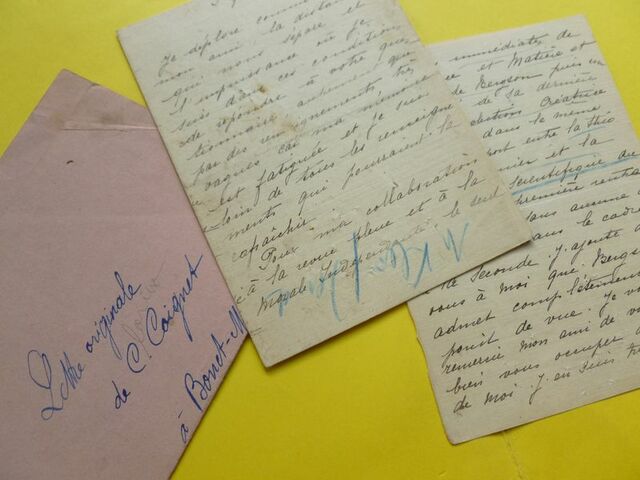 Lettre originale
de C. Coignet
à Bonet-M
Je déplore comme
mon ami la distance
qui nous sépare et
l'impuissance où je
suis dans ces conditions
de répondre à votre ques
tionnaire autrement que
par des renseignements très
vagues car ma mémoire
est fatiguée et je suis
loin de tous les renseigne
ments qui pourraient la
rafraîchir.
Pour ma collaboration
à la revue bleue et à la
Morale Indépendante, le
immédiates de
ce et Matière et
de Bergson puis un
de sa dernière
olution Créatrice
dans le même
ort entre la théo
nier et la
seul scientifique du
première rentrant
sans aucune
dans le cadre
la seconde. J'ajoute à
vous à moi que Bergs
admet complètement
point de vue. Je vous
remercie mon ami de vou
bien vous occuper
de moi. J'en suis